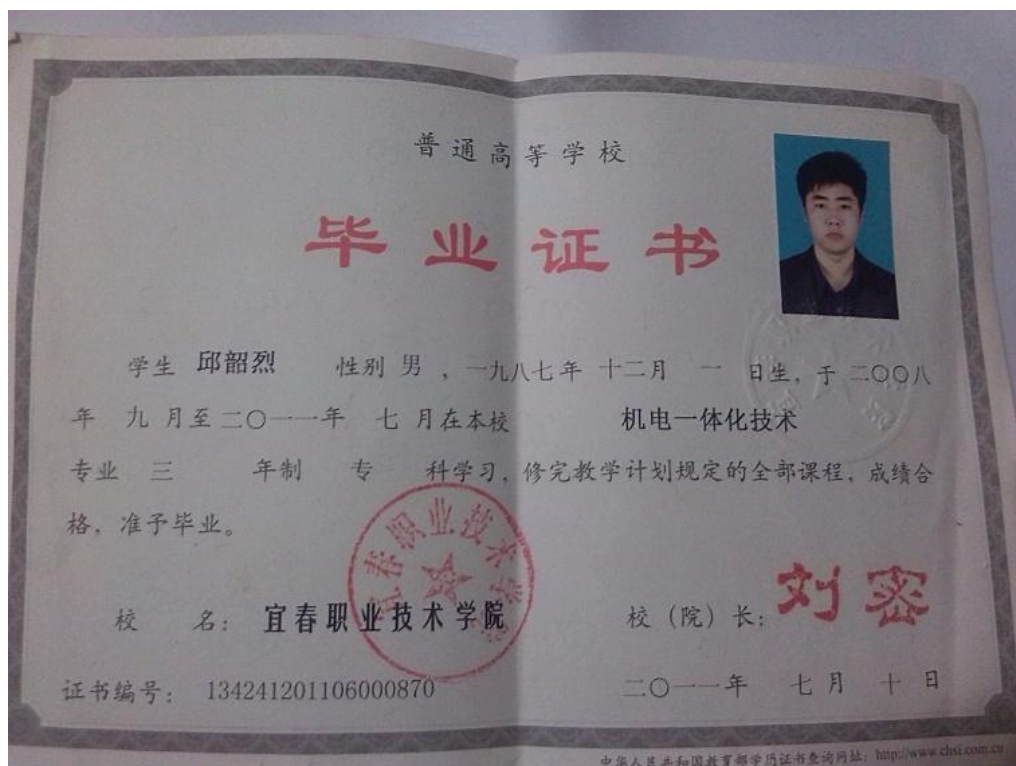 普通高等学校
毕业证书
学生 邱韶烈 性别 男 ，一九八七年 十二月 一 日生，于 二〇〇八
年 九 月至二〇一一年 七 月在本校 机电一体化技术
专业 三 年制 专 科学习，修完教学计划规定的全部课程，成绩合
格，准予毕业。
宜春职业技术学院
校 名： 宜春职业技术学院 校（院）长： 刘密
证书编号： 134241201106000870 二〇一一年 七月 十日
中华人民共和国教育部学历证书查询网址：http://www.chsi.com.cn